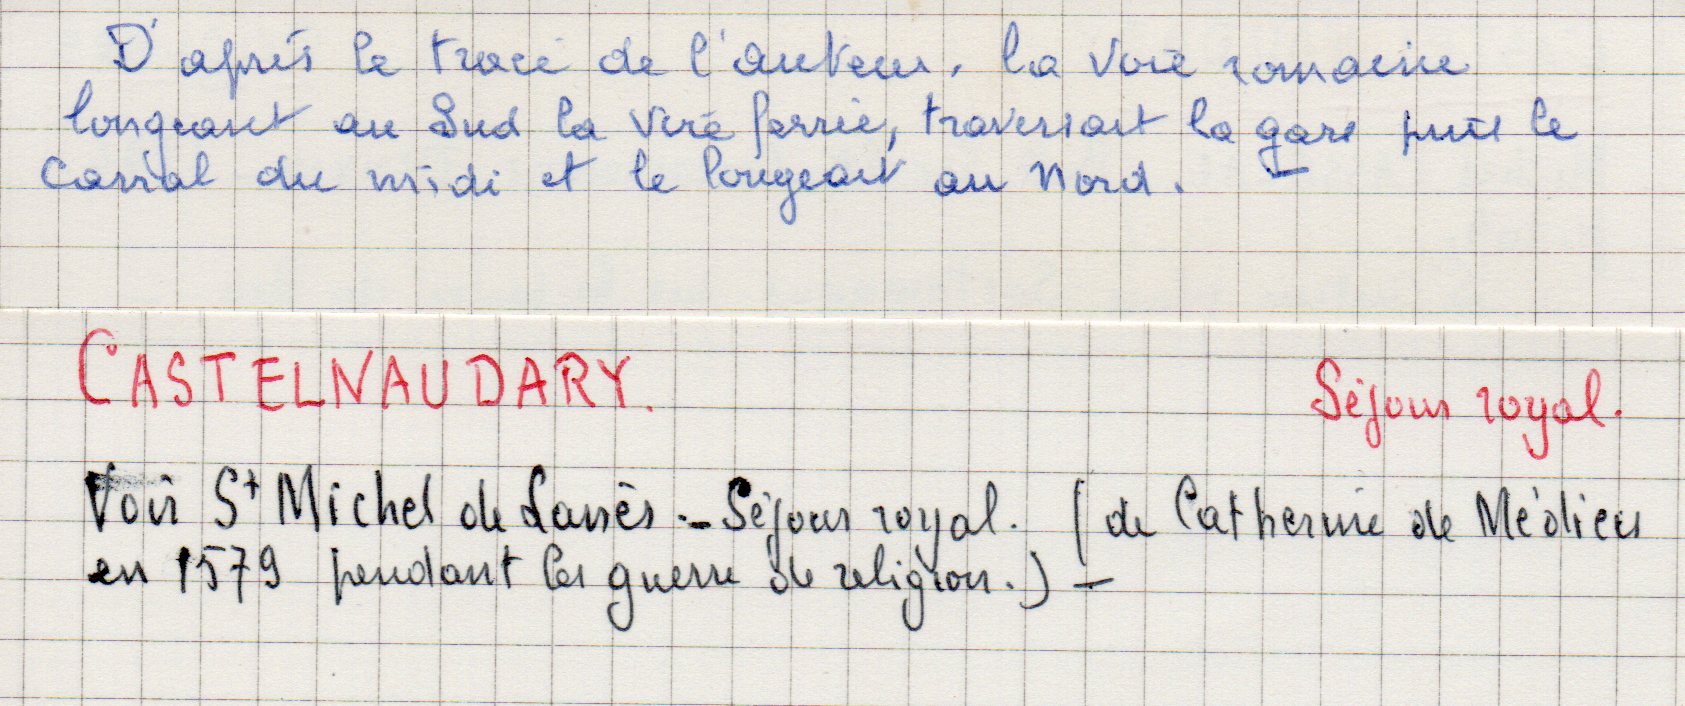 D'après le tracé de l'auteur, la voie romaine
longeant au Sud la voie ferrée, traversant la gare puis le
Canal du midi et le longeant au Nord.
CASTELNAUDARY. Séjour royal.
Voir St Michel de Lanès. - Séjour royal. (de Catherine de Médicis
en 1579 pendant les guerre de religion.) -